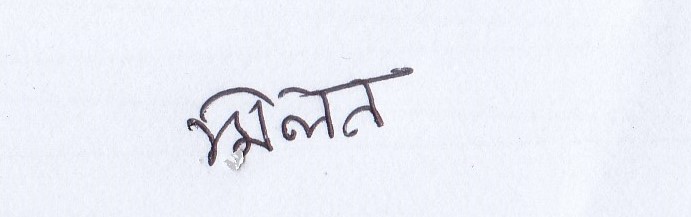 মিলন